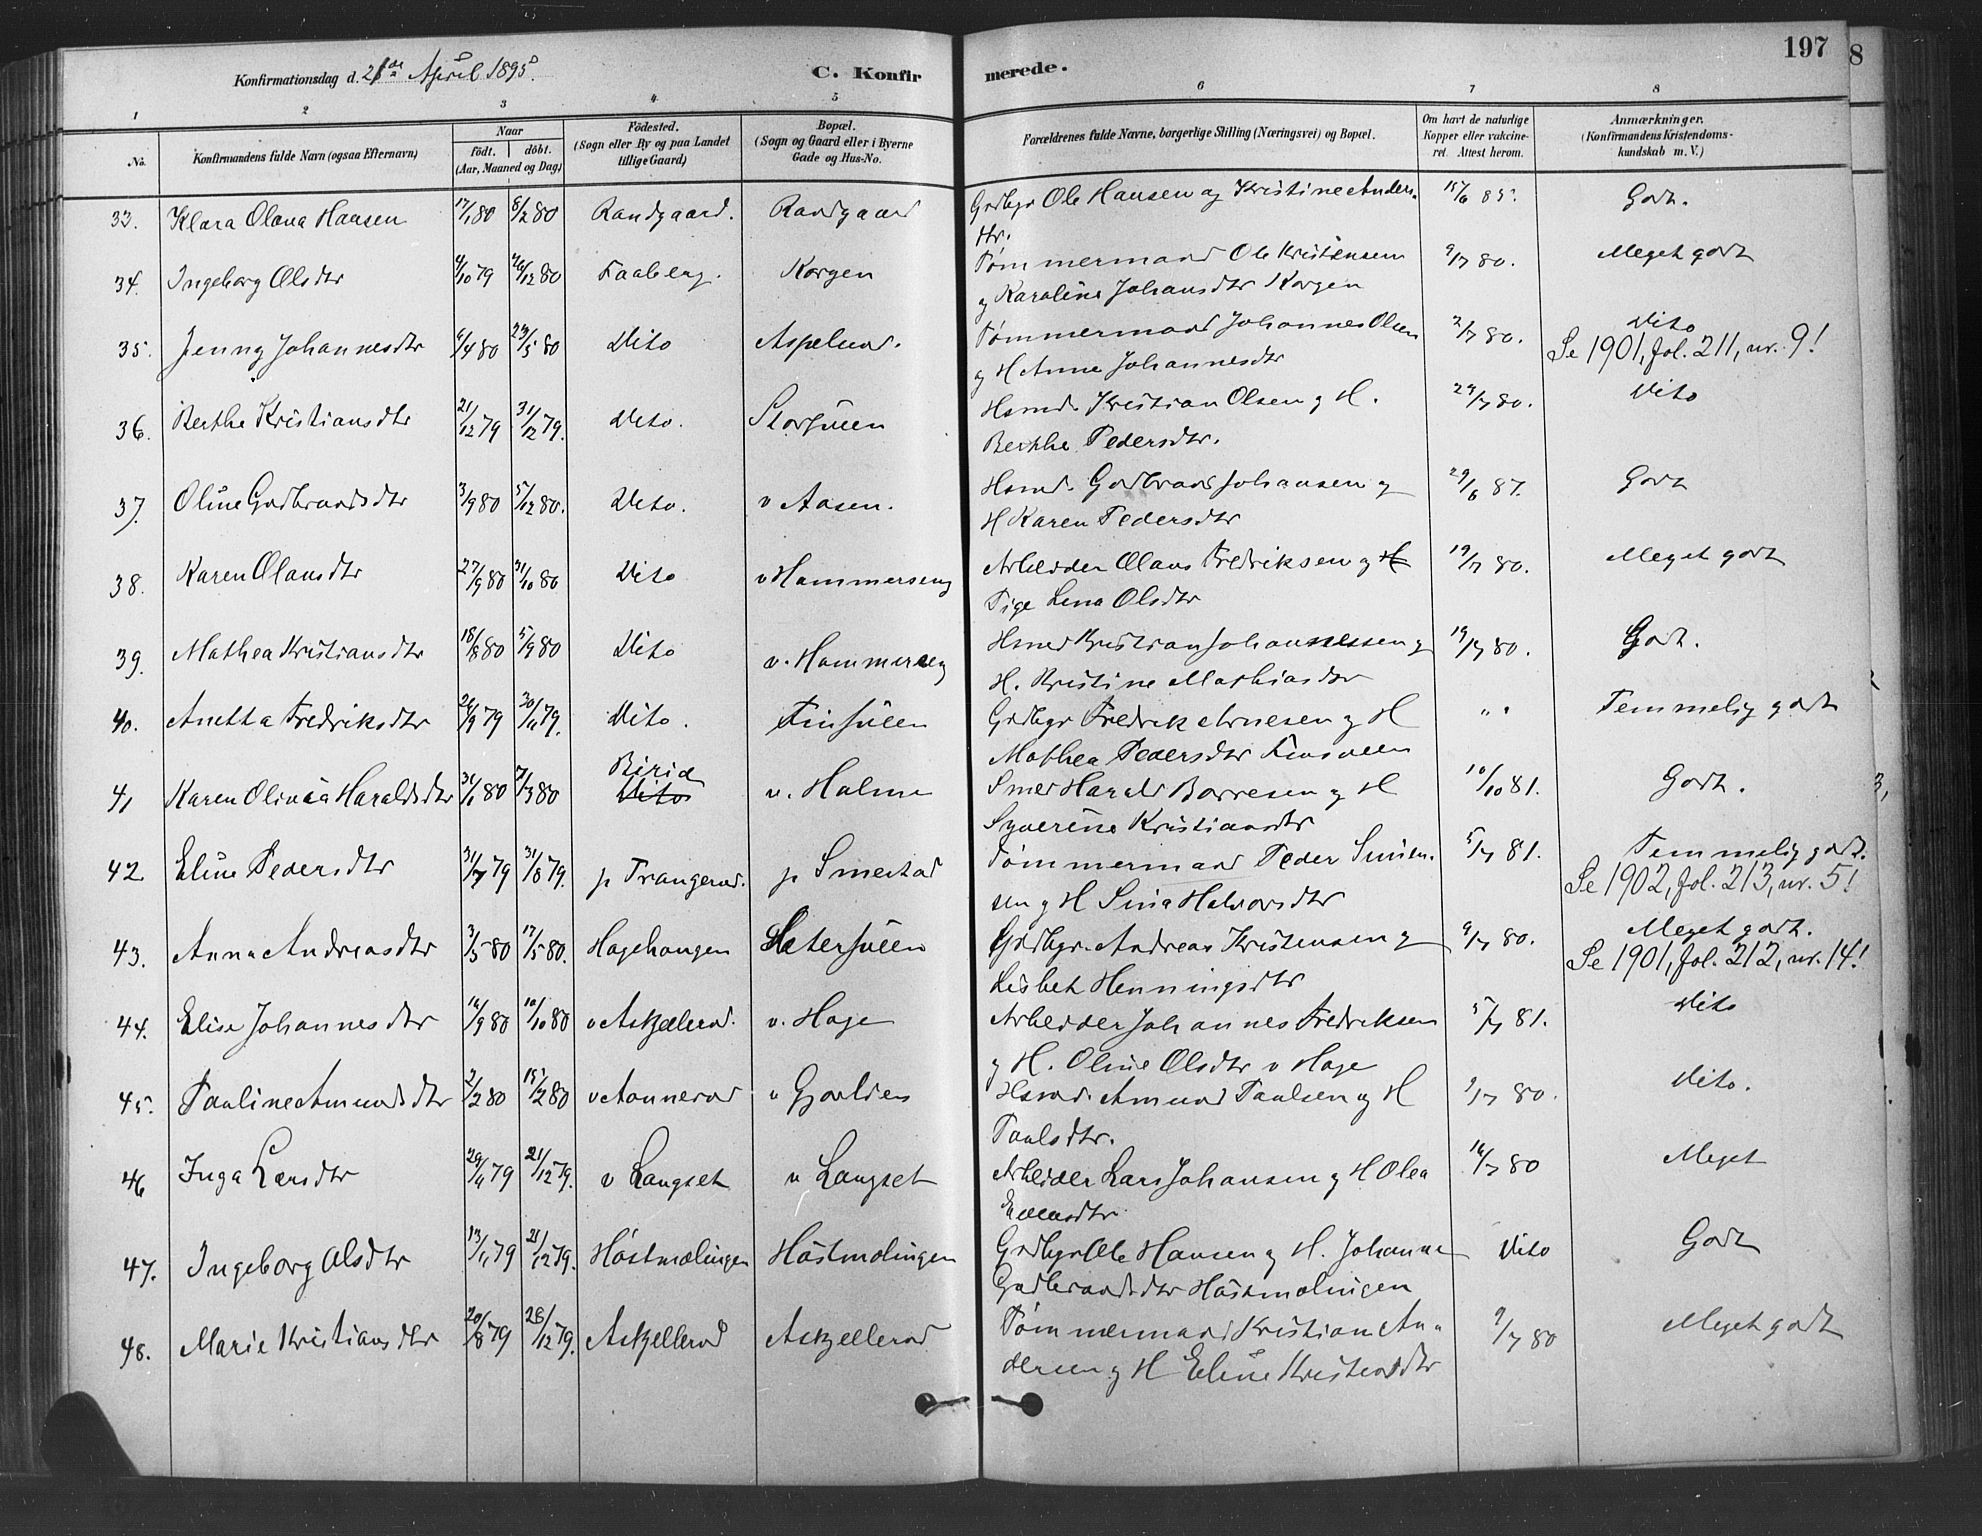 Konfirmationsdag d. 21de April 1895.
C. Konfirmerede.
197
8
1 2 3 4 5 6 7 8
No.
Konfirmandens fulde Navn (ogsaa Efternavn)
Naar
födt. döbt.
(Aar, Maaned og Dag)
Födested.
(Sogn eller By og paa Landet
tillige Gaard)
Bopæl.
(Sogn og Gaard eller i Byerne
Gade og Hus-No.
Forældrenes fulde Navne, borgerlige Stilling (Næringsvei) og Bopæl.
Om havt de naturlige
Kopper eller vakcine-
ret. Attest herom.
Anmærkninger.
(Konfirmandens Kristendoms-
kundskab m. V.)
33. Klara Olava Hansen 17/1 80 8/2 80 Randgaard. Randgaard Grdbgr Ole Hansen og Kristine Anders- 15/6 85. Godt.
dtr.
34. Ingeborg Olsdtr 4/10 79 26/12 80 Faaberg. Korgen Tømmermand Ole Kristensen 9/7 80. Meget godt
og Karoline Johansdtr Korgen
35. Jenny Johannesdtr 6/4 80 23/5 80 Dito Aspelund. Tømmermand Johannes Olsen 2/7 80. Dito
og H Anne Johannesdtr Se 1901, fol. 211, nr. 9!
36. Berthe Kristiansdtr 21/12 79 31/12 79. Dito. Storsveen Hsmd. Kristian Olsen og H. 29/7 80. Dito
Berthe Pedersdtr.
37. Oline Gudbrandsdtr 3/9 80 5/12 80. Dito. v Aasen. Hsmd. Gudbrand Johansen og 29/6 87. Godt
H Karen Pedersdtr
38. Karen Olausdtr 27/9 80 31/10 80 Dito v Hammerseng Arbeider Olaus Fredriksen og H 19/7 80. Meget godt
Pige Lena Olsdtr
39. Mathea Kristiansdtr 18/8 80 5/9 80 Dito v. Hammerseng Hsmd Kristian Johannessen og 19/7 80. Godt.
H. Kristine Mathiasdtr
40. Anetta Fredriksdtr 26/9 79 30/11 79. Dito. Finsveen Grdbgr Fredrik Arnesen og H " " Temmelig godt
Mathea Pedersdtr Finsveen
41 Karen Olivia Haraldsdtr 31/1 80 7/3 80 Birid Dito v. Holme Smed Harald Borresen og H 10/10 81. Godt.
Syverine Kristiansdtr
42. Eline Pedersdtr 31/7 79 31/8 79. p Trangerud. p Smestad Tømmermand Peder Simen- 5/7 81. Temmelig godt.
sen og H Sina Halvorsdtr Se 1902, fol. 213, nr. 5!
43. Anna Andreasdtr 3/5 80 17/5 80. Hagehaugen Sætersveen Grdbgr. Andreas Kristensen og 9/7 80. Meget godt.
Lisbet Henningsdtr Se 1901, fol. 212, nr. 14!
44. Elise Johannesdtr 16/9 80 10/10 80 v Askjellerud. v. Hage Arbeider Johannes Fredriksen 5/7 81. Dito
og H. Oline Olsdtr v Hage
45. Pauline Amundsdtr 2/2 80 15/2 80 v Aannerud v Gjovlien Hsmd. Amund Paulsen og H 9/7 80. Dito.
Paulsdtr.
46 Inga Larsdtr 29/11 79 21/12 79. v Langset v Langset Arbeider Lars Johansen og H Olea 16/7 80 Meget
Evensdtr
47. Ingeborg Olsdtr 13/11 79 21/12 79. Höstmælingen Höstmælingen Grdbgr Ole Hansen og H. Johanne Dito Godt
Gudbrandsdtr Höstmælingen
48. Marie Kristiansdtr 20/8 79 28/12 79. Askjellerud Askjellerud Tømmermand Kristian An- 9/7 80 Meget godt
dersen og H Eline Kristensdtr